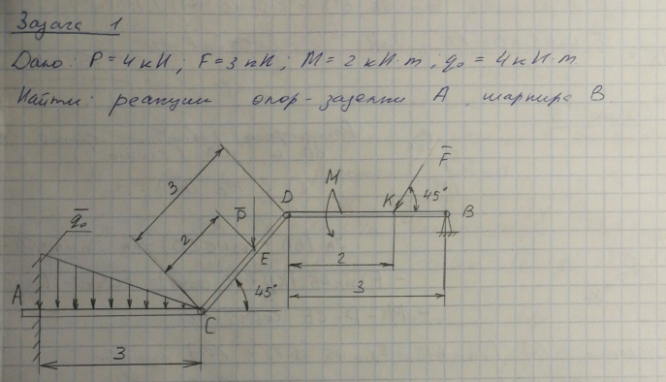 Задача 1
Дано: P = 4 кН; F = 3 кН; M = 2 кН·м; q₀ = 4 кН·м
Найти: реакции опор - заделки A, шарнира B.
F̅
D
M
3
K
45°
B
q̅₀
P̅
2
E
2
A
45°
3
C
3